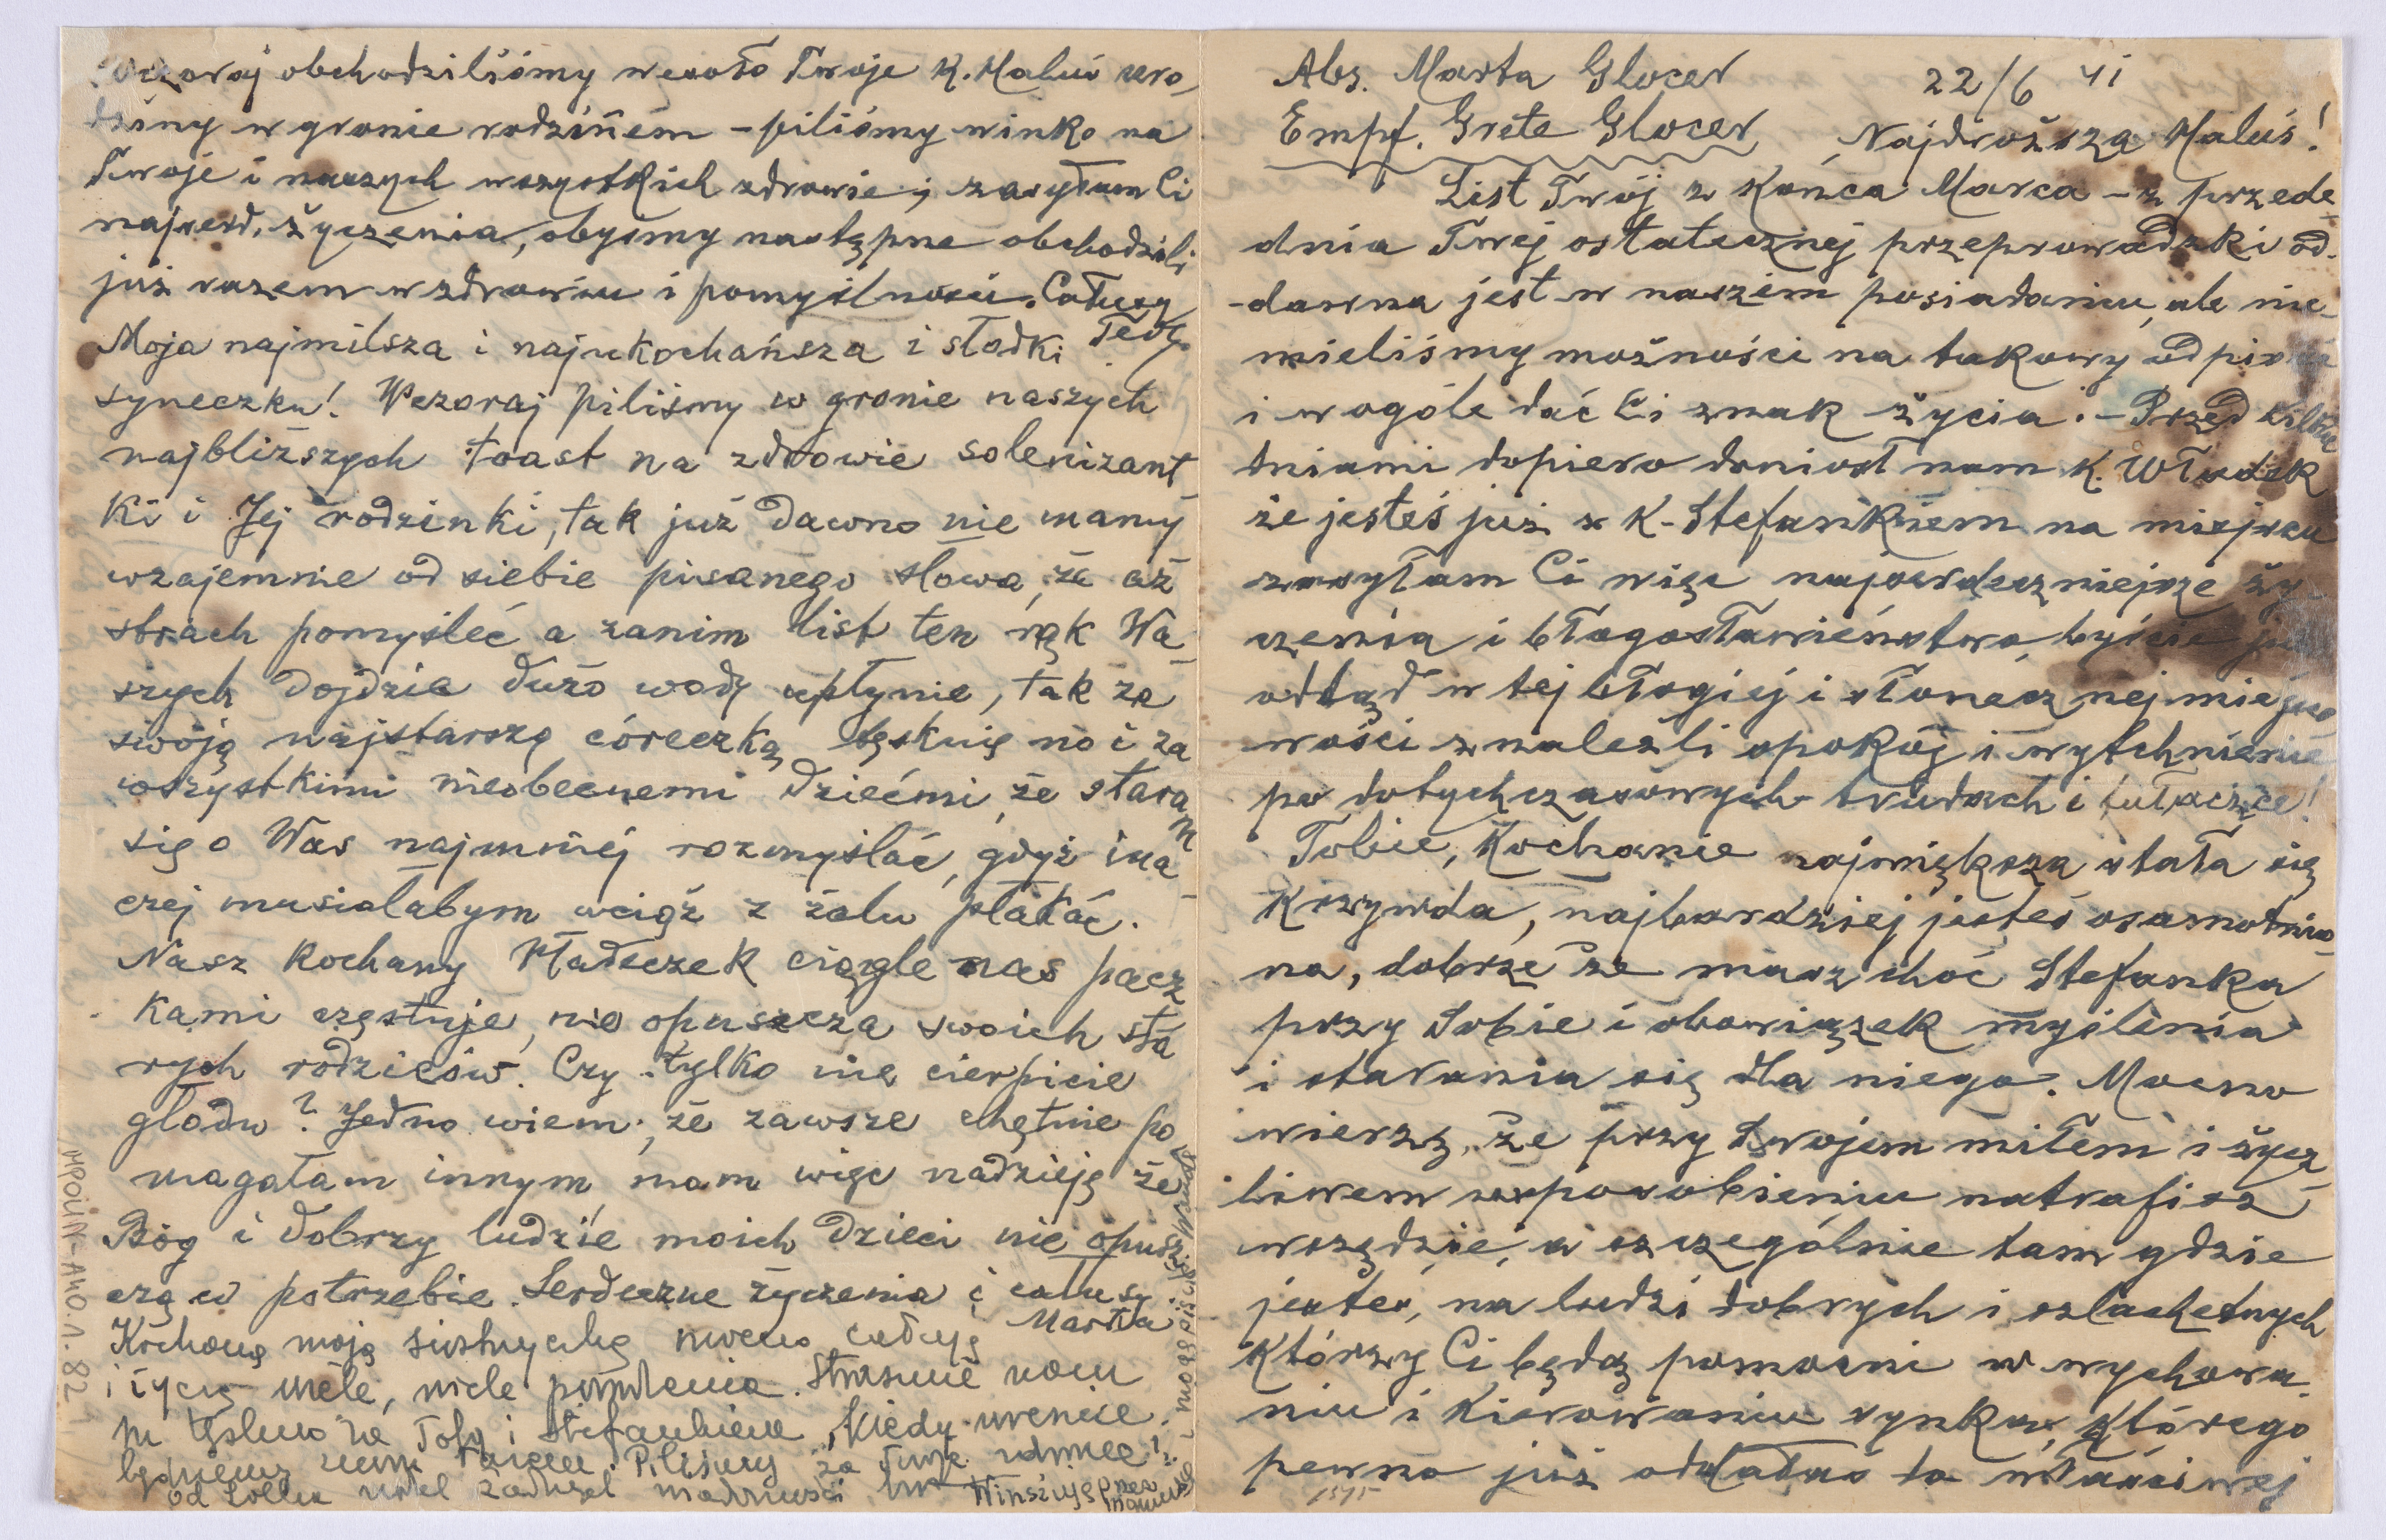 Abs. Marta Glocer 22/6 41
Empf. Grete Glocer Najdroższa Maluś!
List Twój z końca Marca – z przede
dnia Twej ostatecznej przeprowadzki od
-dawna jest w naszem posiadaniu, ale nie
mieliśmy możności na takowy odpisać
i wogóle dać Ci znak życia. – Przed kilku
dniami dopiero doniósł nam K. Władek
że jesteś już z K. Stefankiem na miejscu
zasyłam Ci więc najserdeczniejsze ży
czenia i błogosławieństwo, byście już
odtąd w tej błogiej i słonecznej miejsco
wości znaleźli spokój i wytchnienie
po dotychczasowych trudach i tułaczce!
Tobie, Kochanie największa stała się
Krzywda, najbardziej jesteś osamotnio
na, dobrze że masz choć Stefanka
przy Sobie i obowiązek myślenia
i starania się dla niego. Mocno
wierzę, że przy Swojem miłem i życz
liwem usposobieniu natrafisz
wszędzie, a szczególnie tam gdzie
jesteś, na ludzi dobrych i szlachetnych
Którzy Ci będą pomocni w wychowa
niu i Kierowaniu synka, Którego
pewno już oddałaś do właściwej
Wczoraj obchodziliśmy wesoło Twoje K. Maluś uro
dziny w gronie rodzinem – piliśmy winko na
Twoje i naszych wszystkich zdrowie i zasyłam Ci
najserd. życzenia, obyśmy następne obchodzili
już razem w zdrowiu i pomyślności. Całuję
Moja najmilsza i najukochańsza i słodki
syneczku! Wczoraj piliśmy w gronie naszych
najbliższych toast na zdrowie solenizant
ki i Jej rodzinki, tak już dawno nie mamy
wzajemnie od siebie pisanego słowa, że aż
strach pomyśleć a zanim list ten rąk Wa
szych dojdzie dużo wody upłynie, tak za
swoją najstarszą córeczką tęsknię no i za
wszystkimi nieobecnemi dziećmi, że staram
się o Was najmniej rozmyślać, gdyż ina
czej musiałabym wciąż z żalu płakać.
Nasz kochany Władeczek ciągle nas pacz
kami częstuje, nie opuszcza swoich sta
rych rodziców. Czy tylko nie cierpicie
głodu? Jedno wiem, że zawsze chętnie po
magałam innym, mam więc nadzieję że
Bóg i dobrzy ludzie moich dzieci nie opusz
czą w potrzebie. Serdeczne życzenia i całusy
Marta
Kochaną moją siostrzyczkę mocno całuję
i życzę wiele, wiele powodzenia. Strasznie nam
tęskno za Tobą i Stefankiem. Kiedy wreszcie
będziemy razem? Piliśmy za Twoje zdrowie!
Winszuję
MPOLIN-A40.1.82